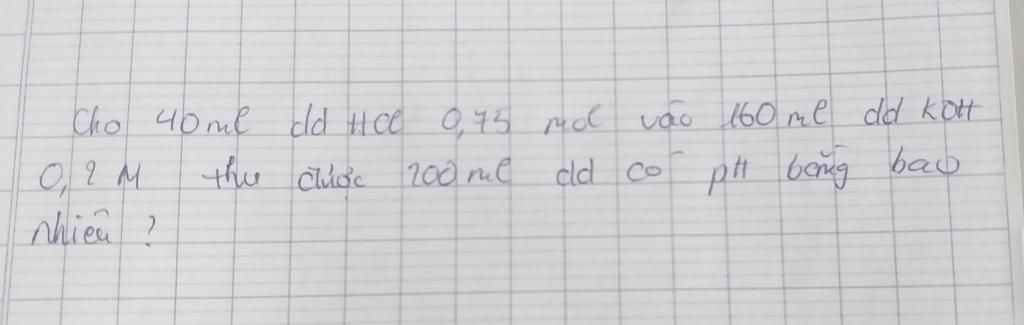 Cho 40 ml dd HCl 0,75 mol vào 160 ml dd KOH
0,2 M thu được 200 ml dd có pH bằng bao
nhiêu ?